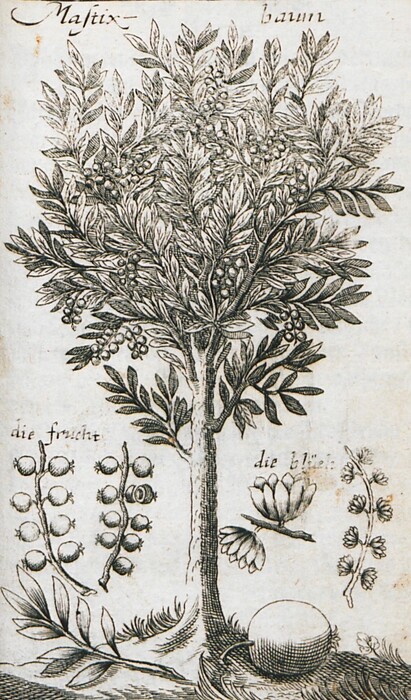 Mastix-baum
die frucht
die blüth